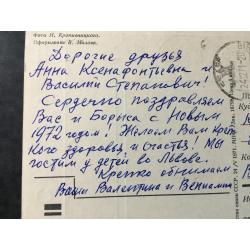 Фото И. Кропивницкого.
Оформление В. Милова.
Дорогие друзья
Анна Ксенафонтьевна и
Василий Степанович!
Сердечно поздравляем
Вас и Бориса с Новым
1972 годом! Желаем Вам креп-
кого здоровья и счастья! Мы
гостим у детей во Львове.
Крепко обнимаем
Ваши Валентина и Вениамин